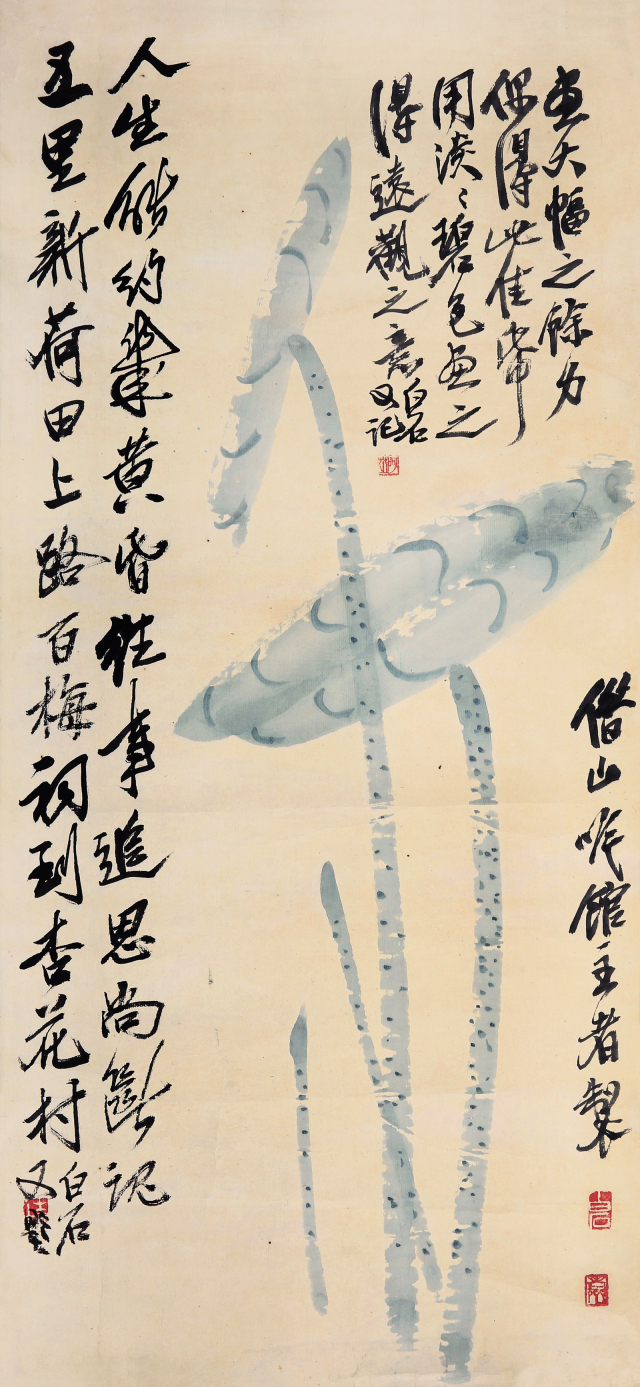 畫大幅之餘力
偶得此佳帋
用淡〻碧色畫之
得遠觀之意白石
又記
借山吟館主者製
人生能約幾黃昏往事追思尚斷魂
五里新荷田上路百梅祠到杏花村白石
又題